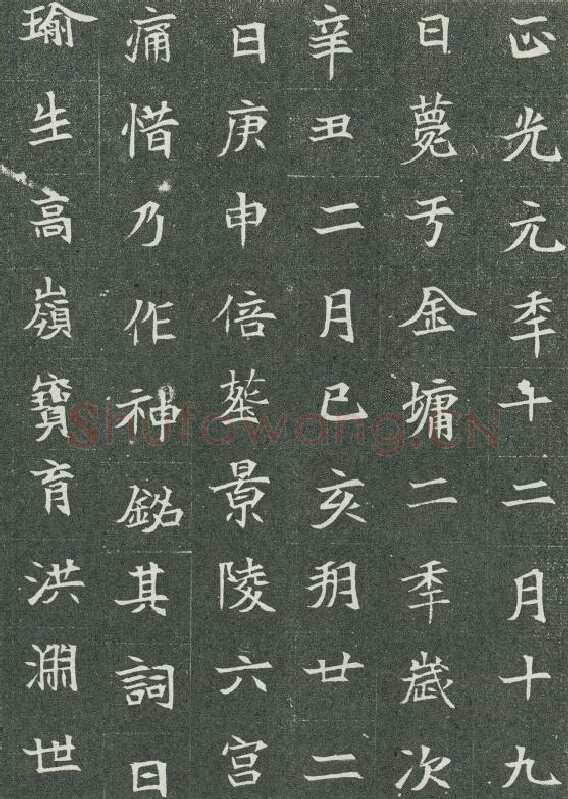 正光元秊十二月十九
日薨于金墉二秊歲次
辛丑二月己亥朔廿二
日庚申倍葬景陵六宮
痛惜乃作神銘其詞曰
瑜生高嶺寶育洪淵世
Shufawang.CN